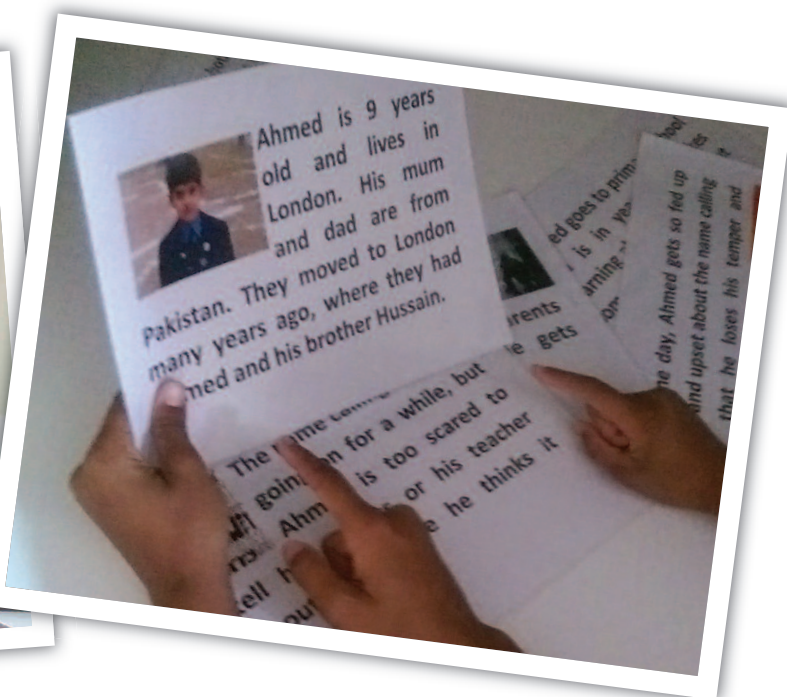 Ahmed is 9 years
old and lives in
London. His mum
and dad are from
Pakistan. They moved to London
many years ago, where they had
med and his brother Hussain.
The name calling
going on for a while, but
Ahm is too scared to
tell or his teacher
he thinks it
ed goes to prim
is in
arning
arents
gets
ne day, Ahmed gets so fed up
and upset about the name calling
that he loses his temper and